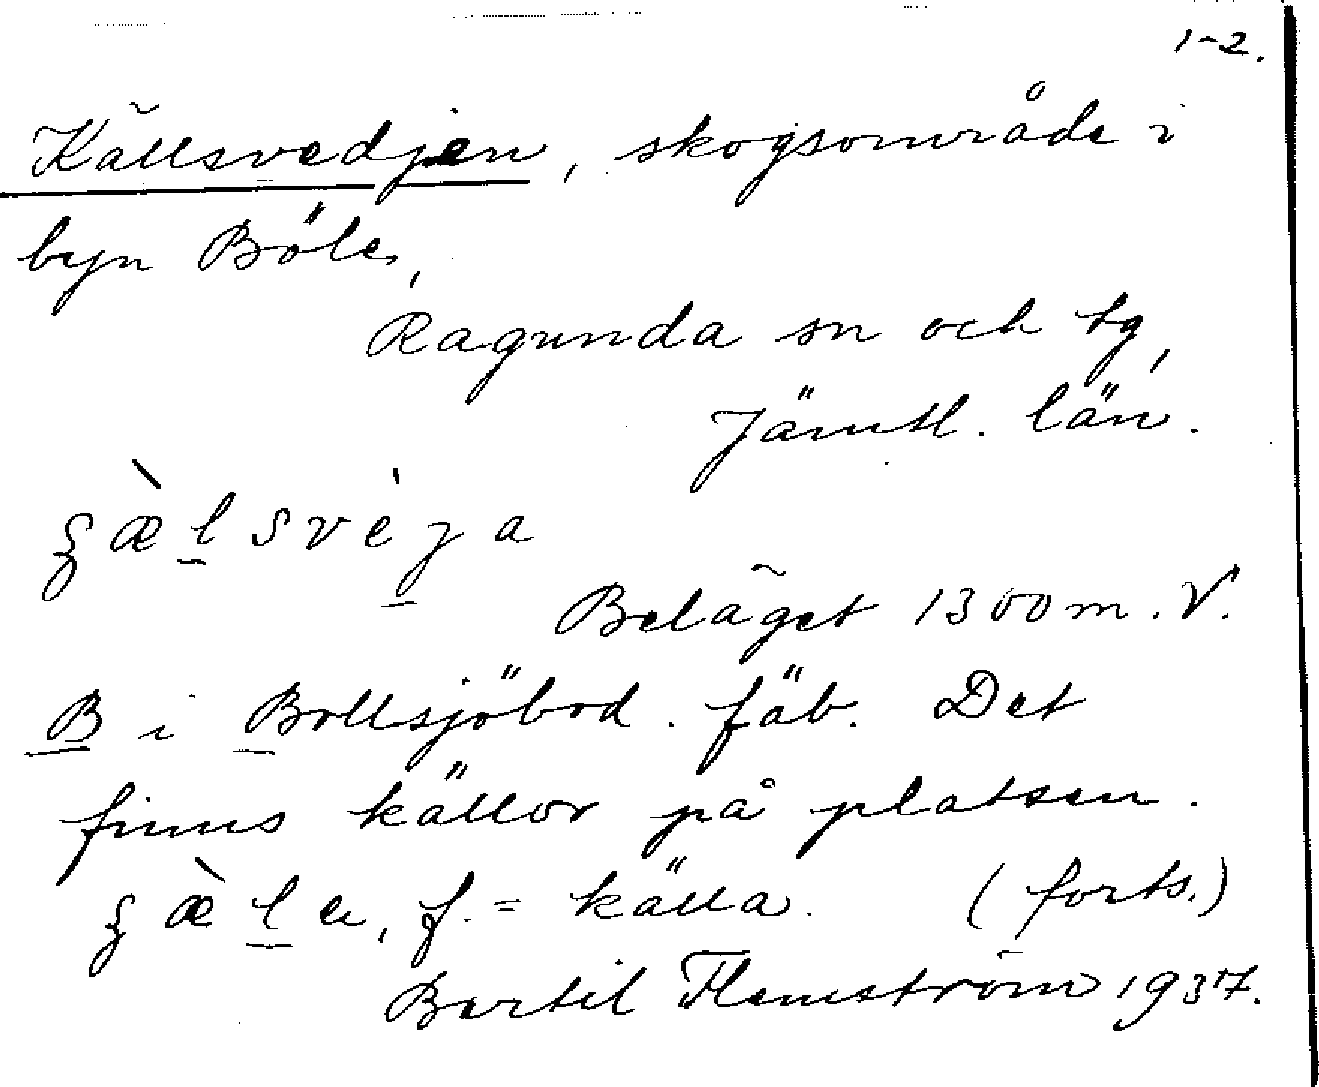 1-2.
Källsvedjen, skogsområde i
byn Böle,
Ragunda sn och tg,
Jämtl. län.
ʒæ̀lsvèja
Beläget 1300 m. V.
B i Bollsjöbod. fäb. Det
finns källor på platsen.
f. = källa. (forts.)
Bertil Flemström 1937.